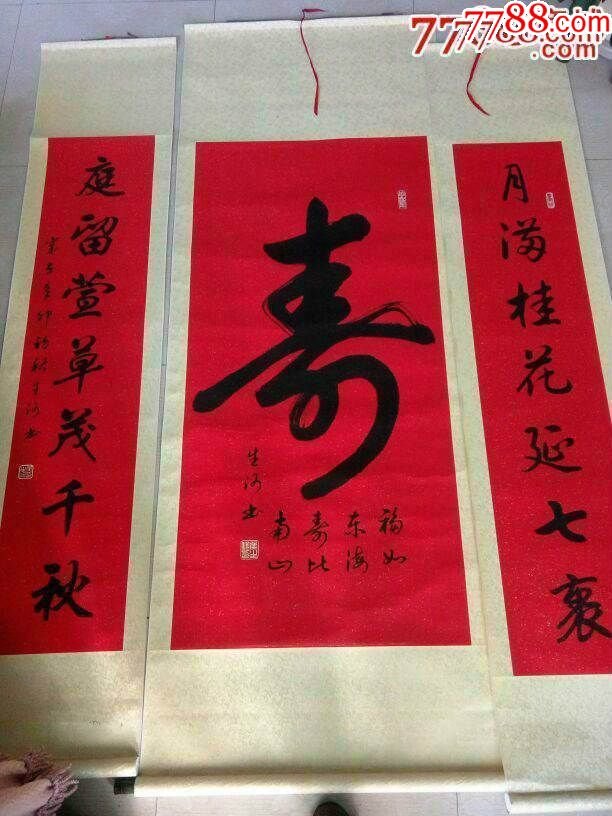 7788.com
月满桂花延七裹
寿
福如
东海
寿比
南山
生河书
庭留萱草茂千秋